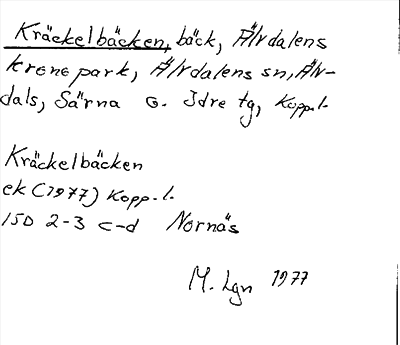 Kräckelbäcken, bäck, Älvdalens
kronopark, Älvdalens sn, Älv-
dals, Särna o. Idre tg, Kopp.l.
Kräckelbäcken
ek (1977) Kopp.l.
15D 2-3 c-d Nornäs
M. Lgn 1977